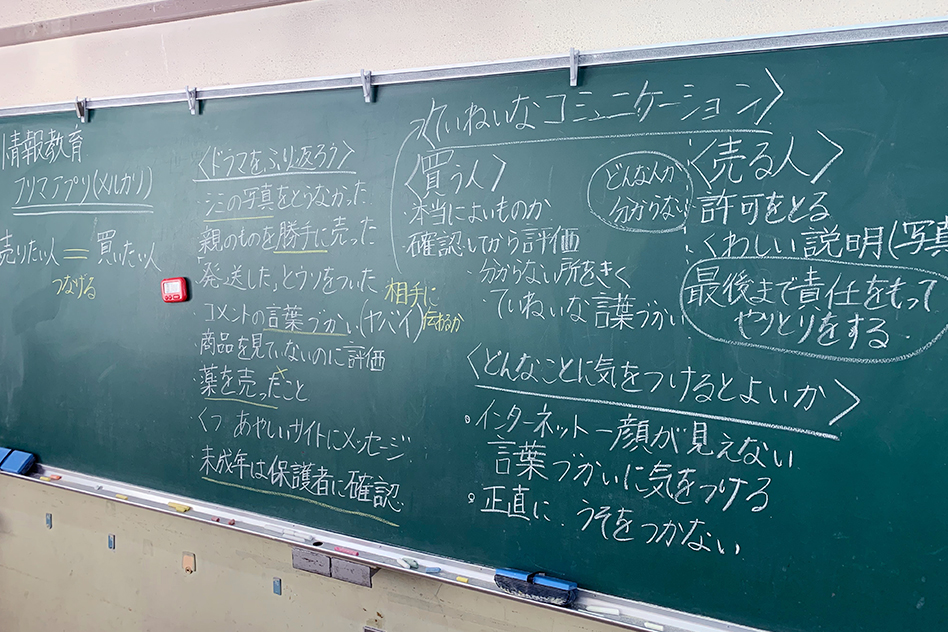 情報教育
フリマアプリ(メルカリ)
売りたい人 = 買いたい人
つなげる
〈ドラマをふり返ろう〉
・シミの写真をとらなかった
・親のものを勝手に売った
・「発送した」とウソをついた
・コメントの言葉づかい(ヤバイ)
相手に
伝わるか
・商品を見ていないのに評価
・薬を売ったこと
あやしいサイトにメッセージ
・未成年は保護者に確認
〈ていねいなコミュニケーション〉
〈買う人〉
・本当によいものか
確認してから評価
・分からない所をきく
・ていねいな言葉づかい
どんな人か
分からない
〈売る人〉
・許可をとる
・くわしい説明(写真
最後まで責任をもって
やりとりをする
〈どんなことに気をつけるとよいか〉
・インターネット―顔が見えない
言葉づかいに気をつける
・正直に うそをつかない